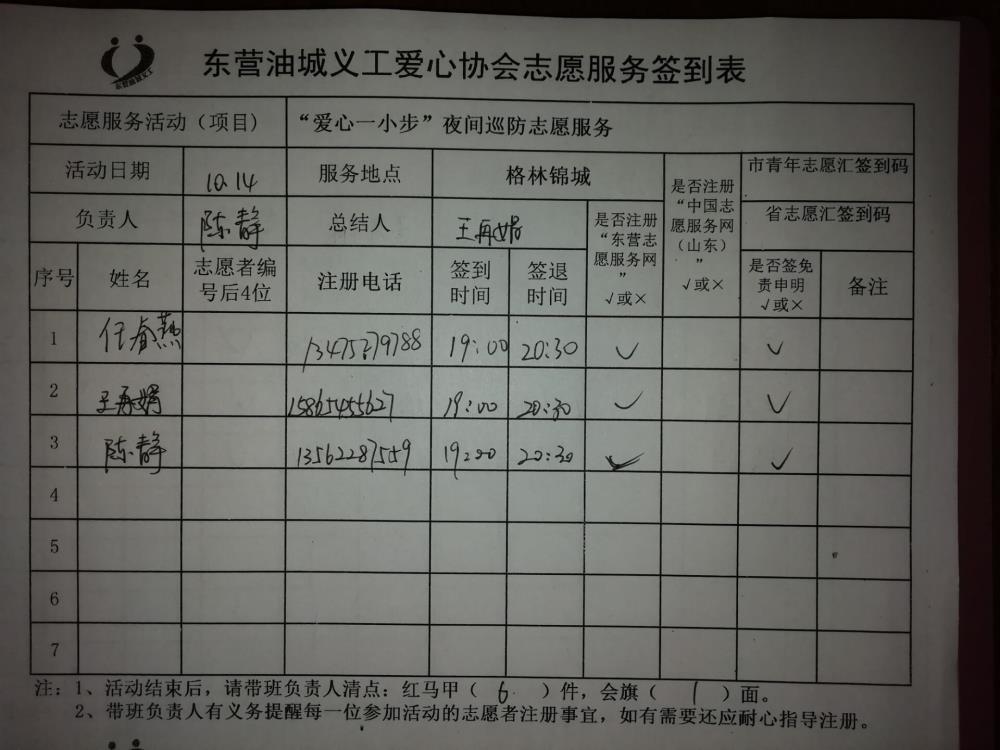 东营油城义工
东营油城义工爱心协会志愿服务签到表
志愿服务活动（项目） “爱心一小步”夜间巡防志愿服务
活动日期 10.14 服务地点 格林锦城 是否注册“中国志愿服务网（山东）” √或× 市青年志愿汇签到码
负责人 陈静 总结人 王再娟 是否注册“东营志愿服务网” √或× 省志愿汇签到码
序号 姓名 志愿者编号后4位 注册电话 签到时间 签退时间 是否签免责申明 √或× 备注
1 任春燕 13475279788 19:00 20:30 ✓ ✓
2 王再娟 15865455627 19:00 20:30 ✓ ✓
3 陈静 13562287559 19:00 20:30 ✓ ✓
4
5
6
7
注：1、活动结束后，请带班负责人清点：红马甲（ 6 ）件，会旗（ 1 ）面。
2、带班负责人有义务提醒每一位参加活动的志愿者注册事宜，如有需要还应耐心指导注册。